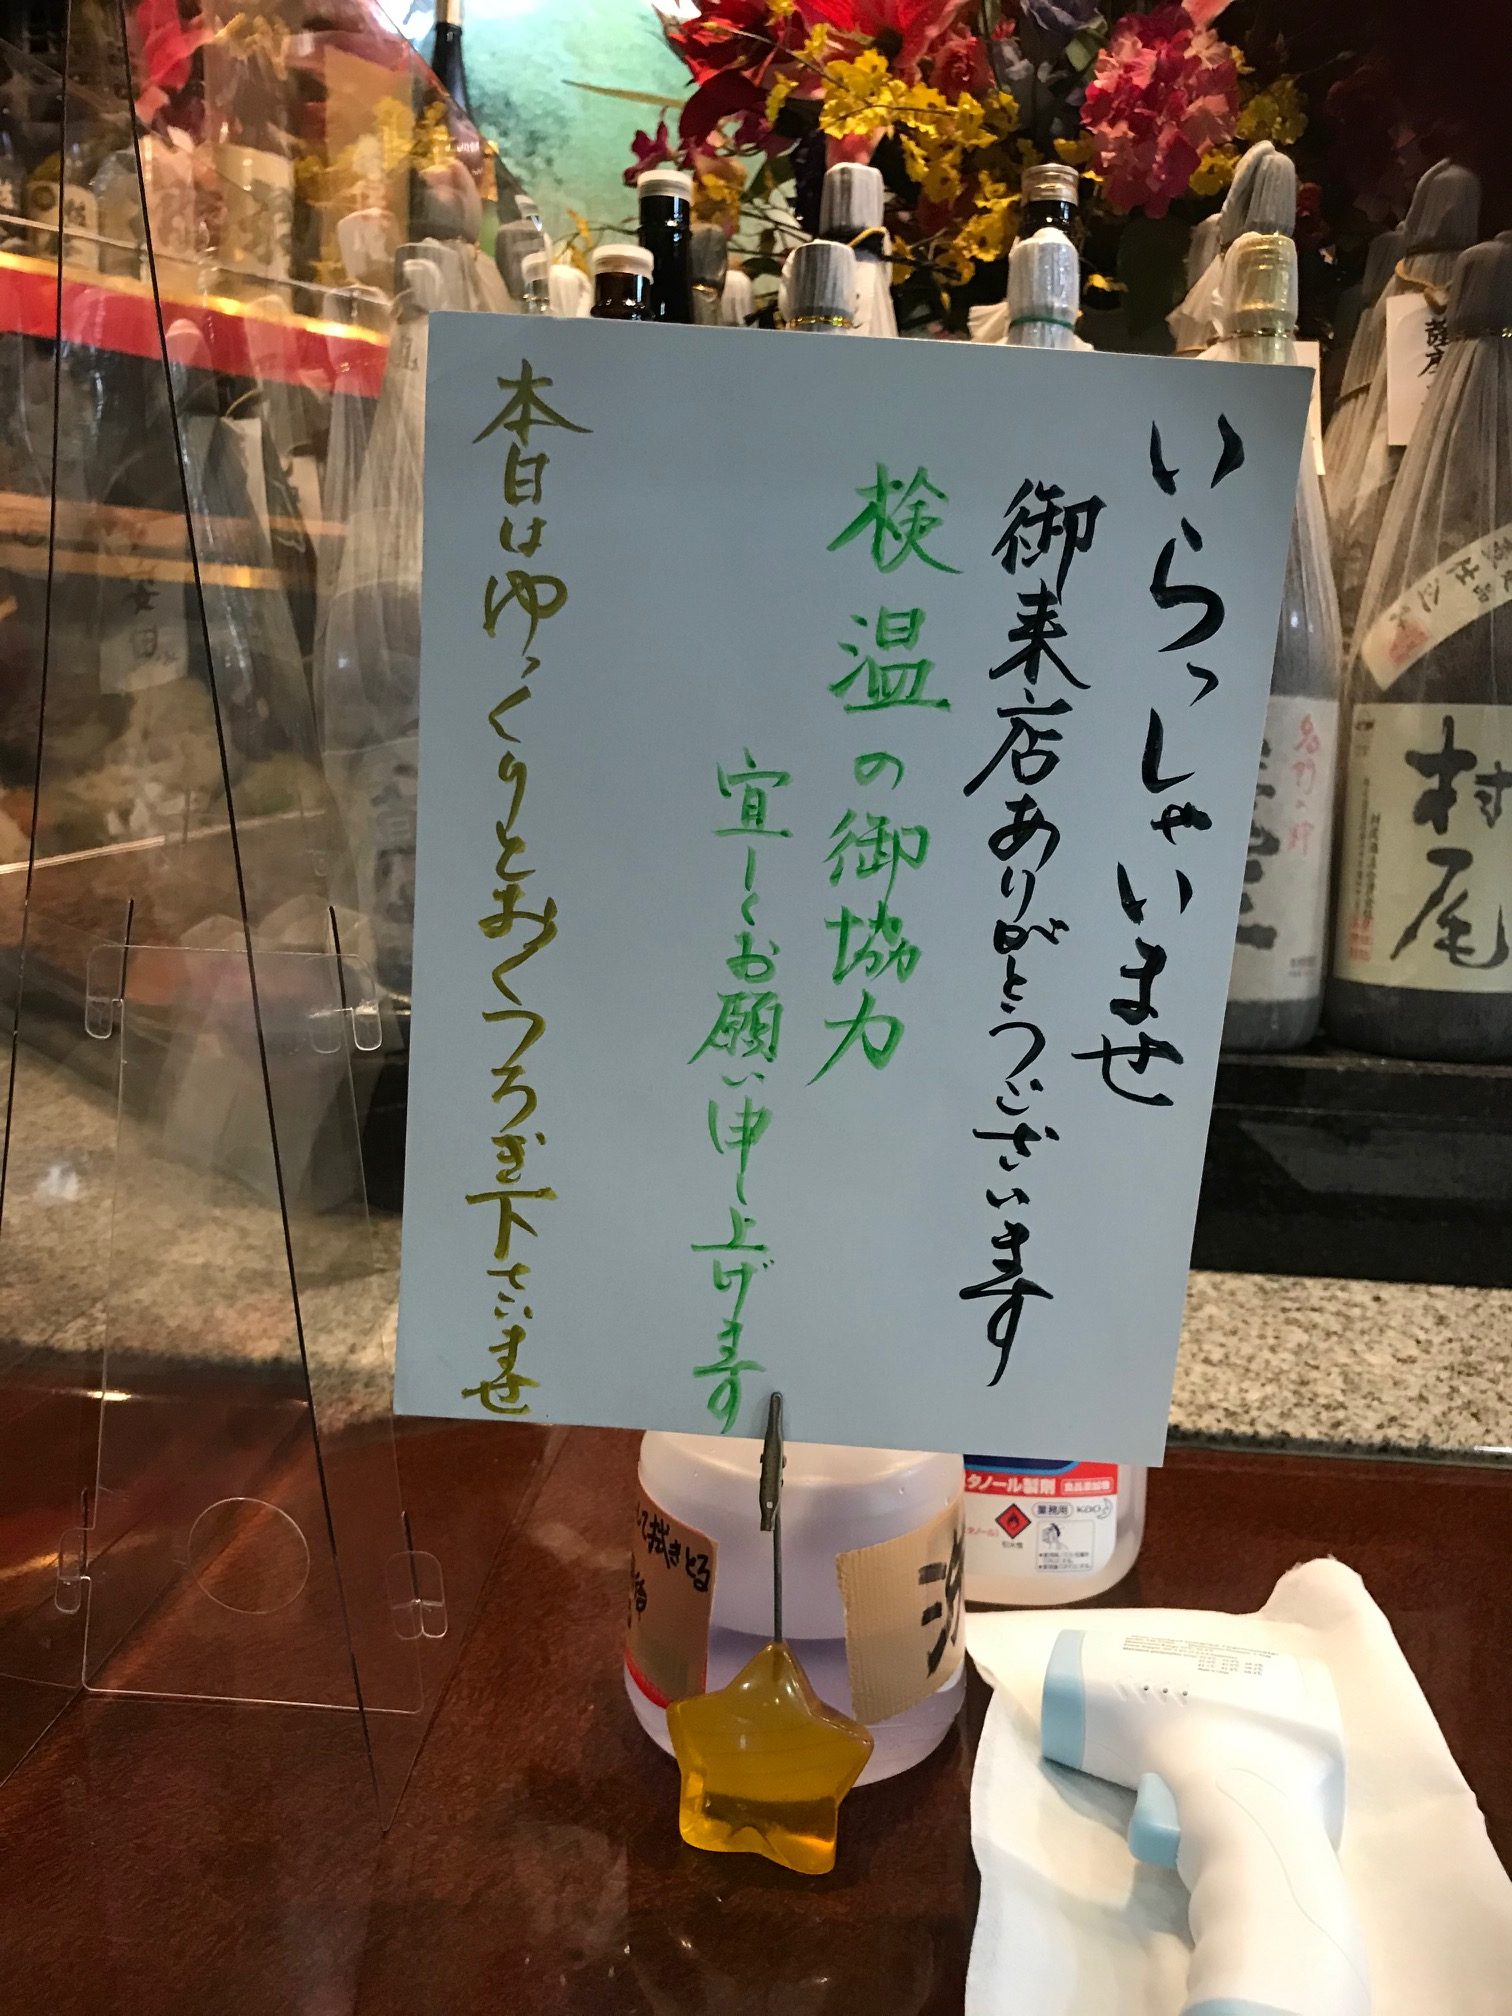 いらっしゃいませ
御来店ありがとうございます
検温の御協力
宜しくお願い申し上げます
本日はゆっくりとおくつろぎ下さいませ
村尾
薩摩
タノール製剤
食品添加物
業務用
Kao
引火性
して拭きとる